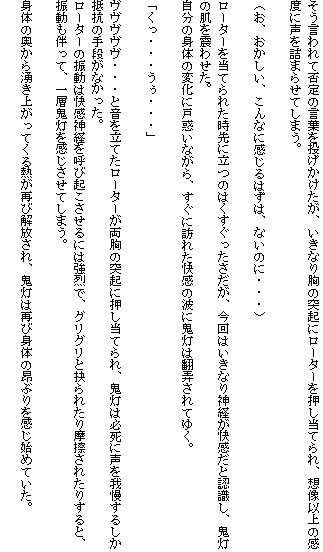 そう言われて否定の言葉を投げかけたが、いきなり胸の突起にローターを押し当てられ、想像以上の感
度に声を詰まらせてしまう。
(お、おかしい、こんなに感じるはずは、ないのに・・・)
ローターを当てられた時先に立つのはくすぐったさだが、今回はいきなり神経が快感だと認識し、鬼灯
の肌を震わせた。
自分の身体の変化に戸惑いながら、すぐに訪れた快感の波に鬼灯は翻弄されてゆく。
「くっ・・・うぅ・・・」
ヴヴヴヴヴ・・・と音を立てたローターが両胸の突起に押し当てられ、鬼灯は必死に声を我慢するしか
抵抗の手段がなかった。
ローターの振動は快感神経を呼び起こさせるには強烈で、グリグリと抉られたり摩擦されたりすると、
振動も伴って、一層鬼灯を感じさせてしまう。
身体の奥から湧き上がってくる熱が再び解放され、鬼灯は再び身体の昂ぶりを感じ始めていた。